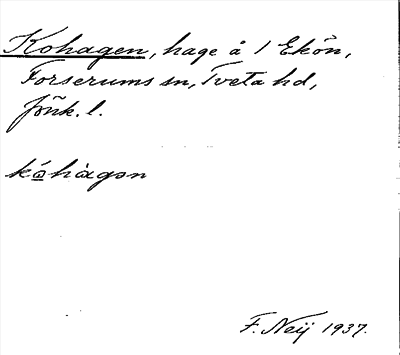 Kohagen, hage å 1 Ekön,
Forserums sn, Tveta hd,
Jönk. l.
kóhàgən
F. Neij 1937.